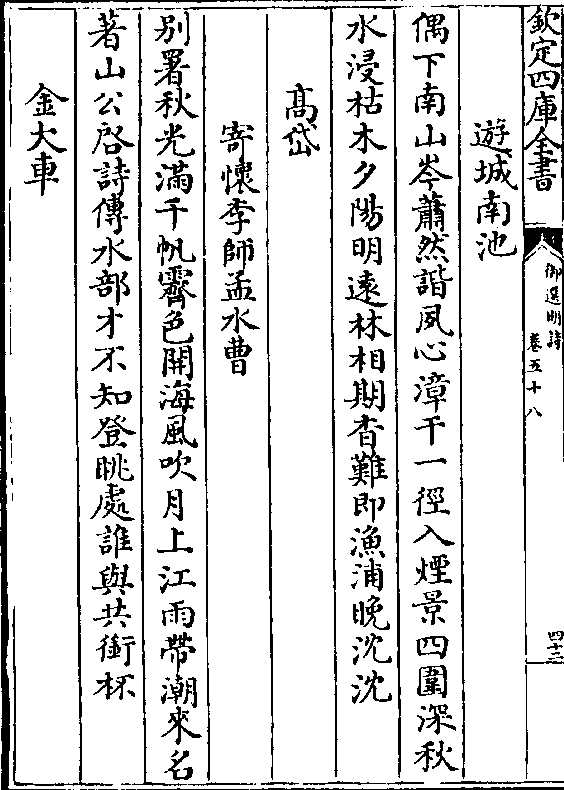 欽定四庫全書
御選明詩
卷五十八
四十二
遊城南池
偶下南山岑蕭然諧夙心漳干一徑入煙景四圍深秋
水浸枯木夕陽明遠林相期杳難即漁浦晚沈沈
高岱
寄懷李師孟水曹
别署秋光滿千帆霽色開海風吹月上江雨帶潮來名
著山公啓詩傳水部才不知登眺處誰與共銜杯
金大車